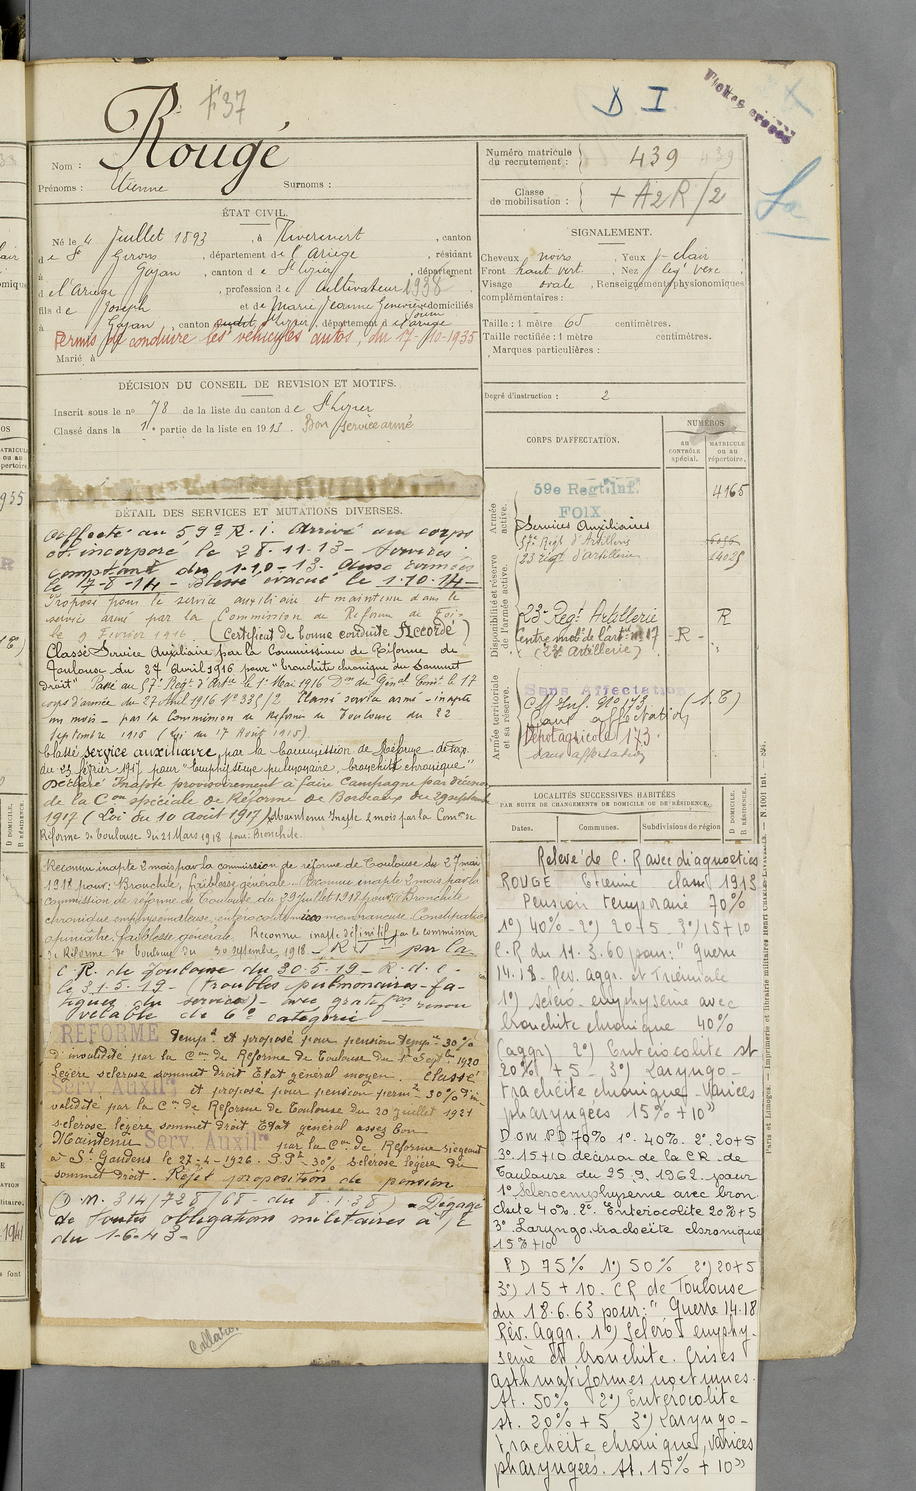 F37
D I
Fiches croisées
Rougé
Nom :
Prénoms : Etienne Surnoms :
Numéro matricule du recrutement : 439
Classe de mobilisation : + A2R/2
ÉTAT CIVIL.
Né le 4 Juillet 1893, à Rivèrenert, canton
de St Girons, département de l'Ariège, résidant
à Gajan, canton de St Lizier, département
de l'Ariège, profession de Cultivateur 1938
fils de Joseph et de Marie Jeanne Geneviève domiciliés
à Gajan, canton St Lizier, département de l'Ariège
Permis de conduire les véhicules autos, du 17-10-1935
Marié à
SIGNALEMENT.
Cheveux noirs, Yeux clair
Front haut vert. Nez
Visage ovale, Renseignements physionomiques
complémentaires :
Taille : 1 mètre 65 centimètres.
Taille rectifiée : 1 mètre centimètres.
Marques particulières :
Degré d'instruction : 2
DÉCISION DU CONSEIL DE REVISION ET MOTIFS.
Inscrit sous le no 78 de la liste du canton de St Lizier
Classé dans la 1e partie de la liste en 1913. Bon service armé
DÉTAIL DES SERVICES ET MUTATIONS DIVERSES.
Affecté au 59e R.I. Arrivé au corps
et incorporé le 28.11.13 - Services :
comptant du 1-10-13. Aux armées
le 7-8-14 - Blessé évacué le 1.10.14 -
Proposé pour le service auxiliaire et maintenu dans le
service armé par la Commission de Réforme de Foix
le 9 Février 1916. (Certificat de bonne conduite Accordé)
Classé Service Auxiliaire par la Commission de Réforme de
Toulouse du 27 Avril 1916 pour "bronchite chronique du sommet
droit" Passé au 57e Régt d'Artie le 1er Mai 1916 Don du Génal Comt le 17
corps d'armée du 27 Avril 1916 No 335/2 Classé service armé - inapte
un mois - par la Commission de Réforme de Toulouse du 22
Septembre 1916 (Loi du 17 Août 1915).
Classé service auxiliaire, par la Commission de Réforme de
du 23 février 1917 pour "Emphysème pulmonaire, bronchite chronique"
Déclaré Inapte provisoirement à faire Campagne par décision
de la Con spéciale de Réforme de Bordeaux du 29 septembre
1917 (Loi du 10 Août 1917) Maintenu Inapte 2 mois par la Comon de
Réforme de Toulouse du 21 Mars 1918 pour : Bronchite.
Reconnu inapte 2 mois par la commission de réforme de Toulouse du 27 mai
1918 pour : Bronchite, faiblesse générale. Reconnu inapte 2 mois par la
commission de réforme de Toulouse du 29 juillet 1918 pour : Bronchite
chronique emphysémateuse, entérocolite membraneuse. Constipation
opiniâtre, faiblesse générale. Reconnu inapte définitif par la commission
de Réforme de Toulouse du 30 septembre 1918 - R T par la
C. R. de Toulouse du 30.5.19 - R.d.c.
le 31.5.19 - (troubles pulmonaires - fa-
tigues du service) - avec gratifon renou
velable de 6e catégorie
REFORME Tempe et proposé pour pension tempre 30%
d'invalidité par la Con de Réforme de Toulouse du 1er Septbre 1920
Légère sclérose sommet droit Etat général moyen. Classé
Serv. Auxilre et proposé pour pension perm. 30% d'in-
validité par la Con de Réforme de Toulouse du 20 juillet 1921
sclérose légère sommet droit Etat général assez bon
Maintenu Serv. Auxilre par la Con de Réforme siégeant
à St Gaudens le 27-4-1926. P.P. 30% Sclérose légère du
sommet droit. Rejet proposition de pension
(D.M. 314/728/68 - du 8.1.38) - Dégagé
de toutes obligations militaires à
du 1-6-43 -
CORPS D'AFFECTATION.
NUMÉROS
au contrôle spécial.
matricule ou au répertoire.
Armée active.
59e Regt. Inf. 4165
FOIX
Services Auxiliaires
57e Régt d'Artillerie
23 régt d'artillerie 14025
Disponibilité et réserve de l'armée active.
23e Régt Artillerie R
Centre mob. de l'art. no 17 - R -
(23e Artillerie)
Armée territoriale et sa réserve.
Sans Affectation
CM Inf. No 173 (S. T.)
Sans affectation
Dépot agricole 173.
sans affectation
LOCALITÉS SUCCESSIVES HABITÉES
PAR SUITE DE CHANGEMENTS DE DOMICILE OU DE RÉSIDENCE.
Dates. Communes. Subdivisions de région
D DOMICILE. R RÉSIDENCE.
Relevé de C. R avec diagnostics
ROUGE Etienne classe 1913
Pension temporaire 70%
1°) 40% - 2°) 20+5 - 3°) 15+10
C.R du 11.3.60 pour : " Guerre
14.18 - Rev. Aggr. et Triennale
1°) Scléro-emphysème avec
bronchite chronique 40%
(aggr) 2°) Entérocolite st
20% + 5 - 3°) Laryngo-
trachéite chronique - varices
pharyngées 15% + 10 »
D om PD 70% 1°. 40%. 2°. 20+5
3°. 15+10 décision de la CR de
Toulouse du 25.9.1962 pour
1° Scléroemphyseme avec bron
chite 40%. 2°. Entérocolite 20%+5
3°. Laryngo.trachéite chronique
15%+10
P D 75% 1°) 50% 2°) 20+5
3°) 15+10. CR de Toulouse
du 18.6.63 pour : " Guerre 14.18
Rev. Aggr. 1°) Scléro emphy-
sème et bronchite. Crises
asthmatiformes nocturnes.
At. 50% 2°) Entérocolite
st. 20% + 5 3°) Laryngo-
trachéite chronique, varices
pharyngées. st. 15% + 10 »
Collaro.